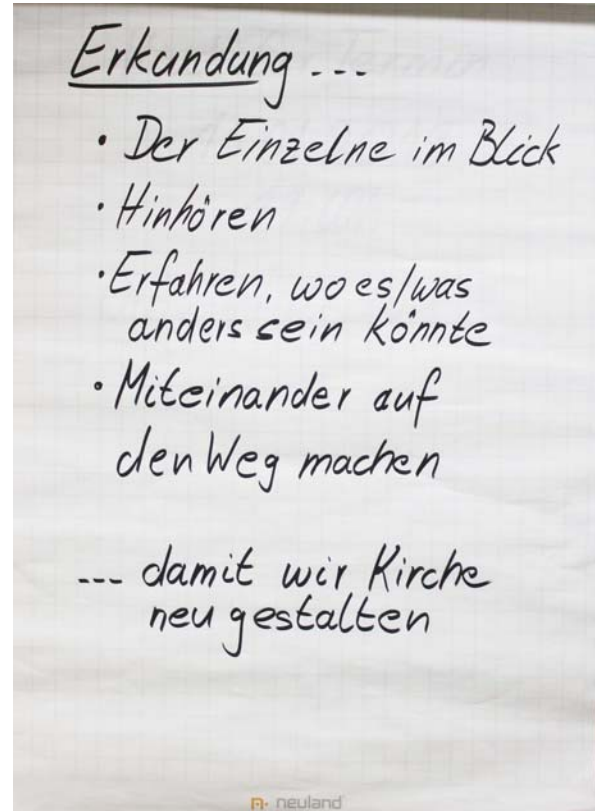 Erkundung ---
• Der Einzelne im Blick
• Hinhören
• Erfahren, wo es/was
anders sein könnte
• Miteinander auf
den Weg machen
--- damit wir Kirche
neu gestalten
neuland